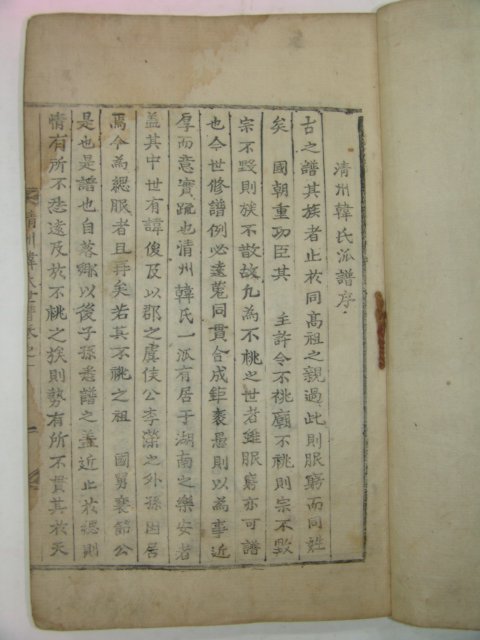 清州韓氏派譜序
古之譜其族者止於同高祖之親過此則服窮而同姓
矣　國朝重功臣其　主許令不祧廟不祧則宗不毀
宗不毀則族不散故凡為不祧之世者雖服窮亦可譜
也今世修譜例必遠蒐同貫合成鉅袠愚則以為事近
厚而意實疏也清州韓氏一派有居于湖南之樂安者
盖其中世有諱俊及以郡之虞侯公李蕖之外孫因居
焉今為緦服者且
矣若其不祧之祖　國舅襄節公
是也是譜也自落鄉以後子孫悉譜之盖近止於緦則
情有所不
遠及於不祧之族則勢有所不貫其於天
清州韓氏世譜卷之一